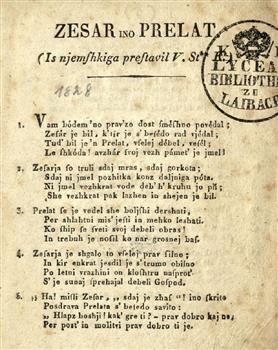 ZESAR INO PRELAT
(Is njemſhkiga preſtavil V. St
K. K.
LYCEAL
BIBLIOTHEK
ZU
LAIBACH
1828
1. Vam búdem 'no prav'zo dost ſméſhno povédal;
Zeſár je bil, k'tir je s' beſédo rad vjédal;
Tud' bil je 'n Prelat, vſelej débel, veſél;
Le ſhkóda! avzhár ſvoj vezh pámet' je jmel!
2. Zeſarja ſo truli sdaj mras, sdaj gorkota;
Sdaj ni jmel pozhitka konz daljniga póta.
Ni jmel vezhkrat vode deb'h' kruhu jo pil;
She vezhkrat pak lazhen in shejen je bil.
3. Prelat ſe je vedel ſhe boljſhi dershati,
Per ahlahtni mis' jeſti in mehko leshati.
Ko ſhip ſe ſveti ſvoj debeli obras!
In trebuh je noſil ko nar grosnej baſ.
4. Zeſarja je shgalo to vſelej prav ſilno;
In kir enkrat jesdil je s' trumo obilno
Po letni vrazhini on kloſhtru naſprot'
S' je sunaj ſprehajal debeli Goſpod.
5. „Ha! miſli Zeſar, „sdaj je zhaſ"! ino ſkrito
Posdrava Prelata s' beſedo savito:
„Hlapz boshji! kak' gre ti? – prav dobro kaj ne,
Per poſt' in molitvi prav dobro ti je.